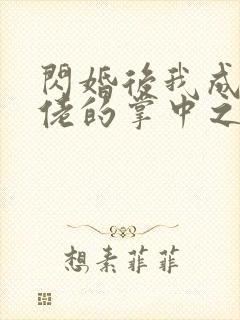 閃婚後我成
佬的掌中之
想素菲菲